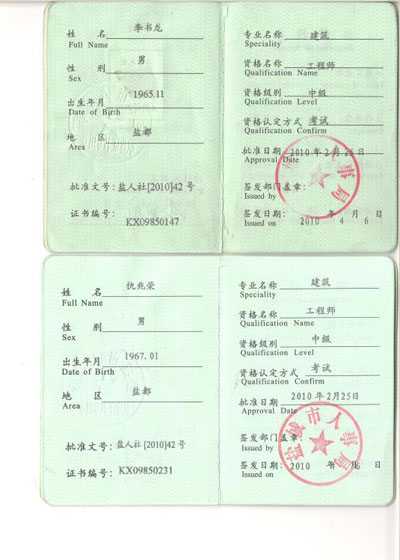 姓 名 李书龙
Full Name
性 别 男
Sex
出生年月 1965.11
Date of Birth
地 区 盐都
Area
批准文号：盐人社[2010]42号
证书编号： KX09850147
专业名称 建筑
Speciality
资格名称 工程师
Qualification Name
资格级别 中级
Qualification Level
资格认定方式 考试
Qualification Confirm
批准日期 2010年2月25日
Approval Date
签发部门盖章：
Issued by
签发日期： 2010 4 6
Issued on
事局
姓 名 仇兆荣
Full Name
性 别 男
Sex
出生年月 1967.01
Date of Birth
地 区 盐都
Area
批准文号：盐人社[2010]42号
证书编号： KX09850231
专业名称 建筑
Speciality
资格名称 工程师
Qualification Name
资格级别 中级
Qualification Level
资格认定方式 考试
Qualification Confirm
批准日期 2010年2月25日
Approval Date
签发部门盖章：
Issued by
签发日期： 2010
Issued on
盐城市人事局